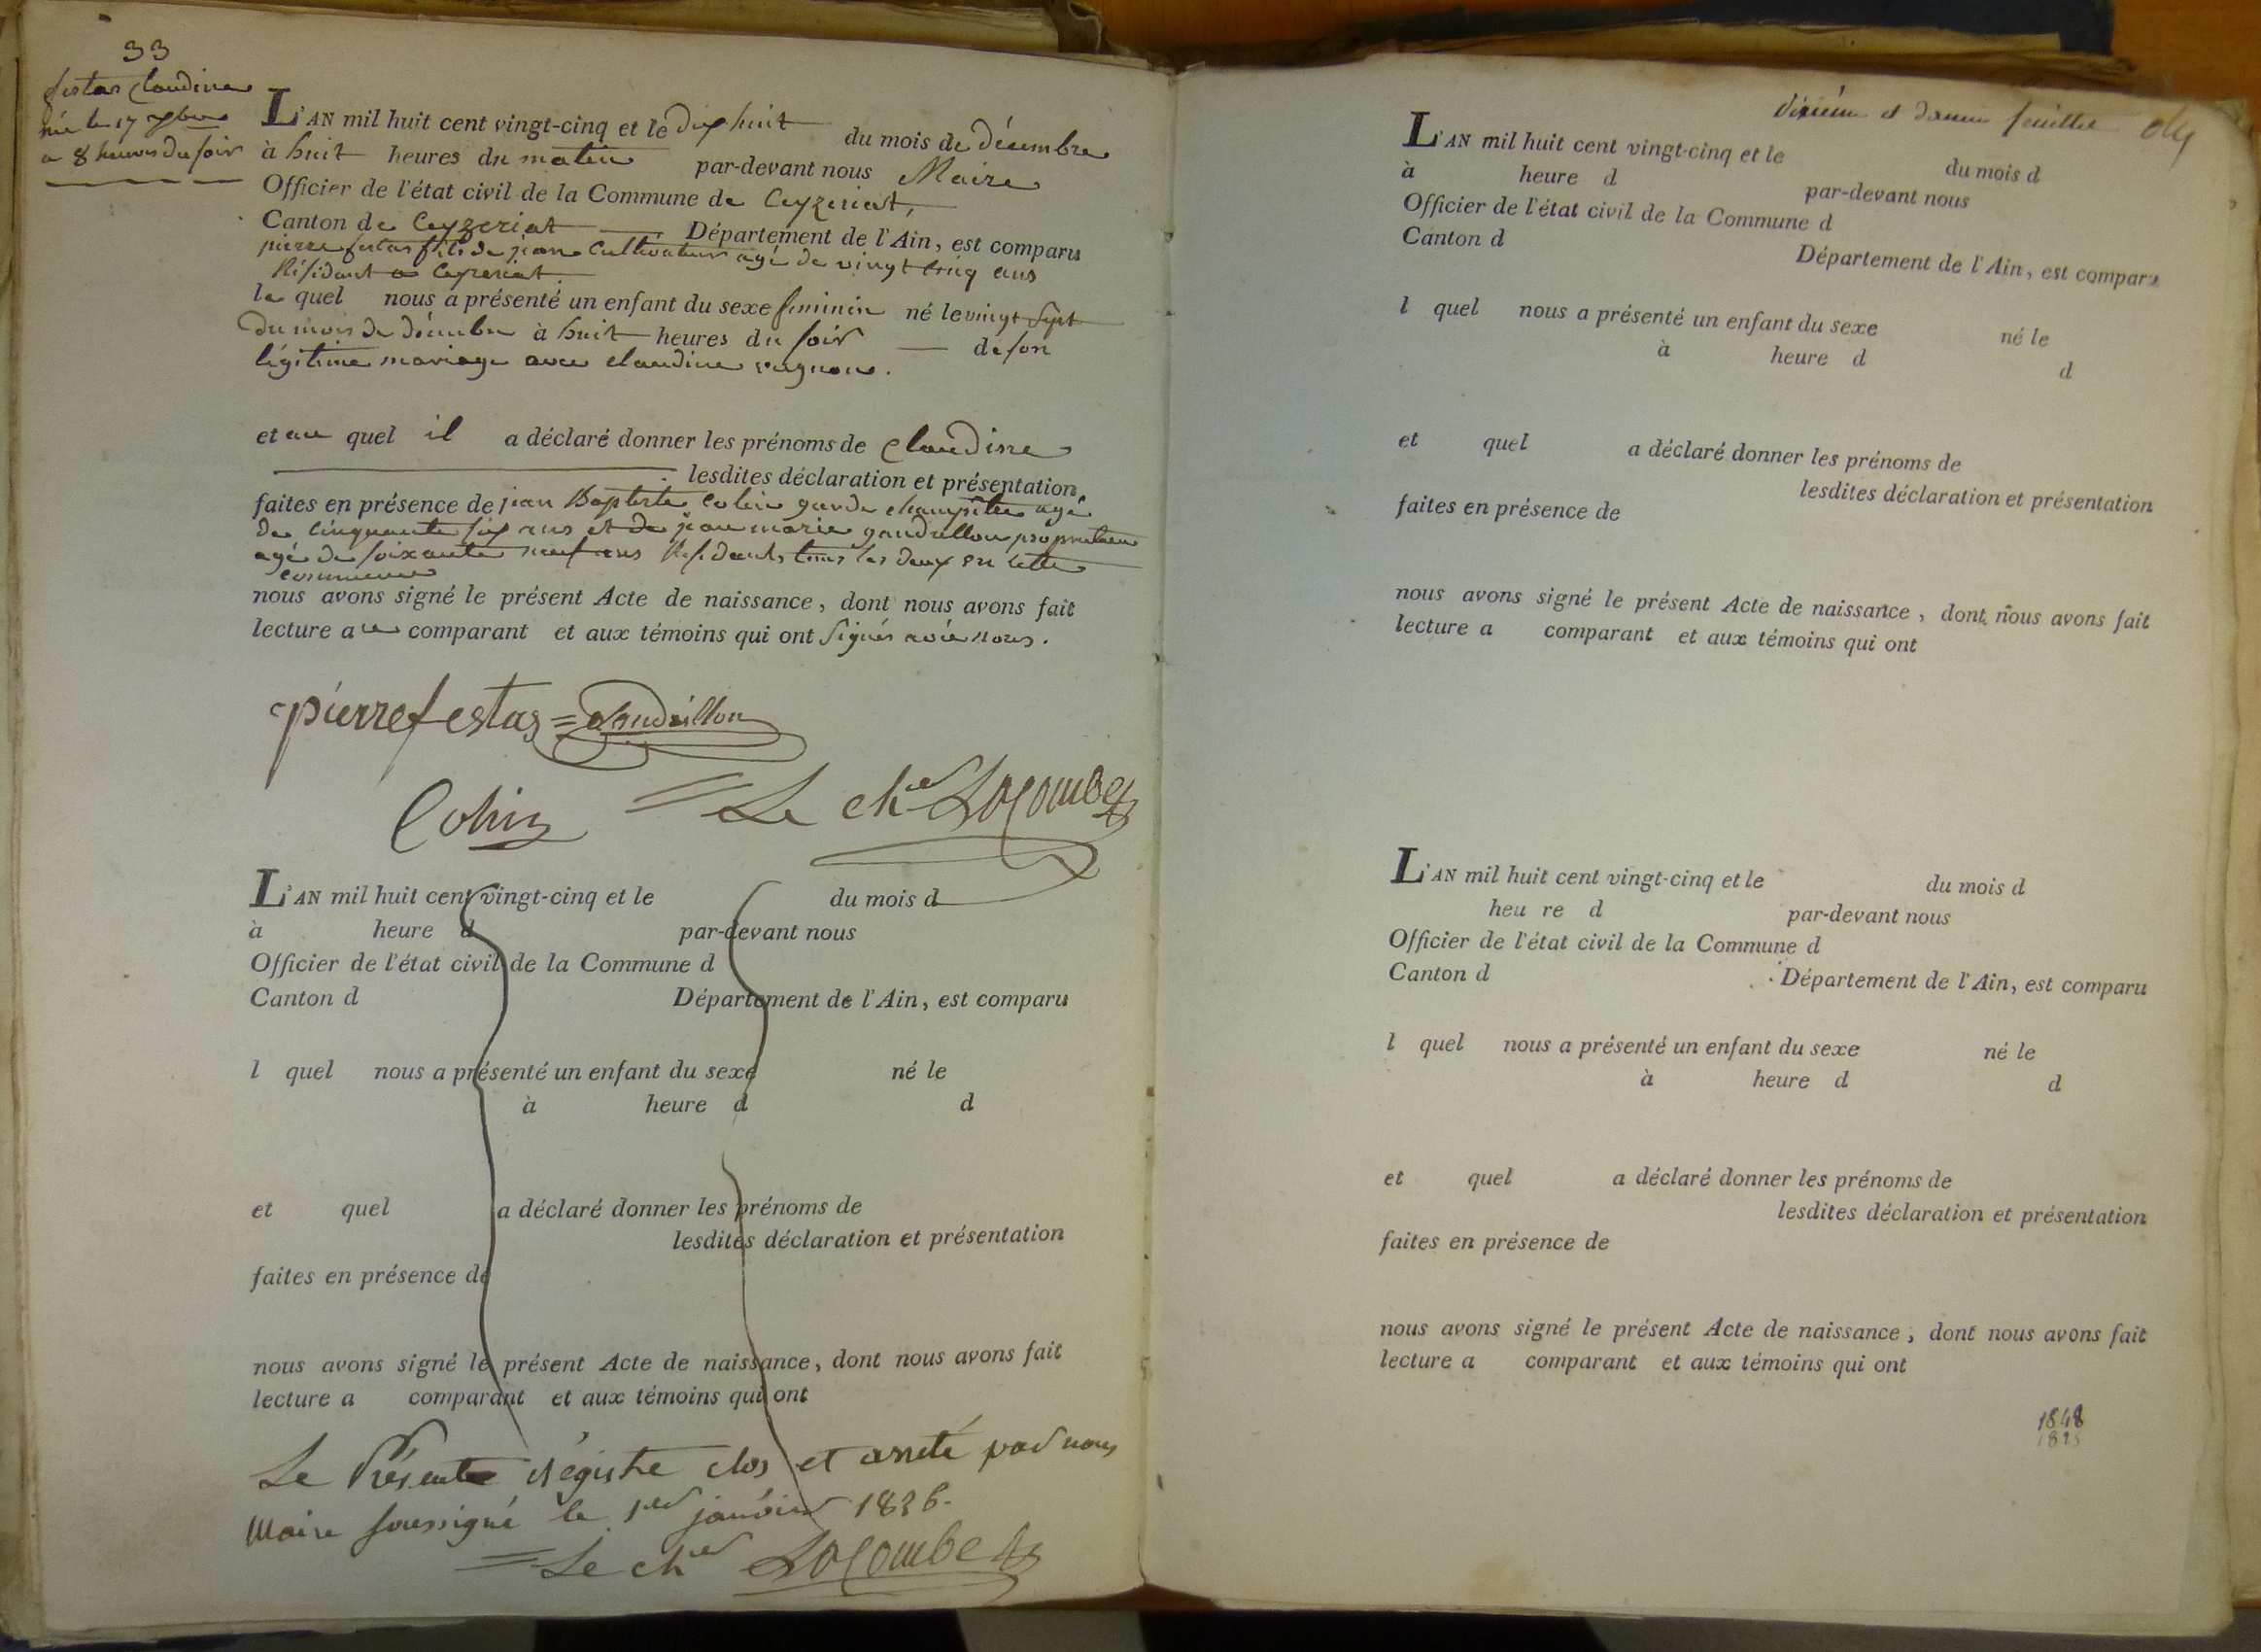 33
festas Claudine
née le 17 xbre
a 8 heures du soir
L'AN mil huit cent vingt-cinq et le dix huit du mois de décembre
à huit heures du matin par-devant nous Maire
Officier de l'état civil de la Commune de Ceyzeriat,
Canton de Ceyzeriat Département de l'Ain, est comparu
pierre festas fils de jean Cultivateur agé de vingt cinq ans
Résidant a Ceyzeriat.
le quel nous a présenté un enfant du sexe feminin né le vingt sept
du mois de décembre à huit heures du soir de son
légitime mariage avec claudine
et au quel il a déclaré donner les prénoms de Claudine
lesdites déclaration et présentation
faites en présence de jean Baptiste Colin garde champêtre agé
de cinquante six ans et de jean marie gaudrillon proprietaire
agé de soixante neuf ans Résidents tous les deux en cette
commune
nous avons signé le présent Acte de naissance, dont nous avons fait
lecture au comparant et aux témoins qui ont signés avec nous.
pierre festas = Gaudrillon
Colin = Le cher Lacombe
L'AN mil huit cent vingt-cinq et le du mois d
à heure d par-devant nous
Officier de l'état civil de la Commune d
Canton d Département de l'Ain, est comparu
l quel nous a présenté un enfant du sexe né le
à heure d d
et quel a déclaré donner les prénoms de
lesdites déclaration et présentation
faites en présence de
nous avons signé le présent Acte de naissance, dont nous avons fait
lecture a comparant et aux témoins qui ont
Le Présente Régistre clos et arreté par nous
Maire soussigné le 1er janvier 1826.
= Le cher Lacombe
dixième et dernier feuillet
L'AN mil huit cent vingt-cinq et le du mois d
à heure d par-devant nous
Officier de l'état civil de la Commune d
Canton d Département de l'Ain, est comparu
l quel nous a présenté un enfant du sexe né le
à heure d d
et quel a déclaré donner les prénoms de
lesdites déclaration et présentation
faites en présence de
nous avons signé le présent Acte de naissance, dont nous avons fait
lecture a comparant et aux témoins qui ont
L'AN mil huit cent vingt-cinq et le du mois d
heu re d par-devant nous
Officier de l'état civil de la Commune d
Canton d Département de l'Ain, est comparu
l quel nous a présenté un enfant du sexe né le
à heure d d
et quel a déclaré donner les prénoms de
lesdites déclaration et présentation
faites en présence de
nous avons signé le présent Acte de naissance, dont nous avons fait
lecture a comparant et aux témoins qui ont
1848
1825